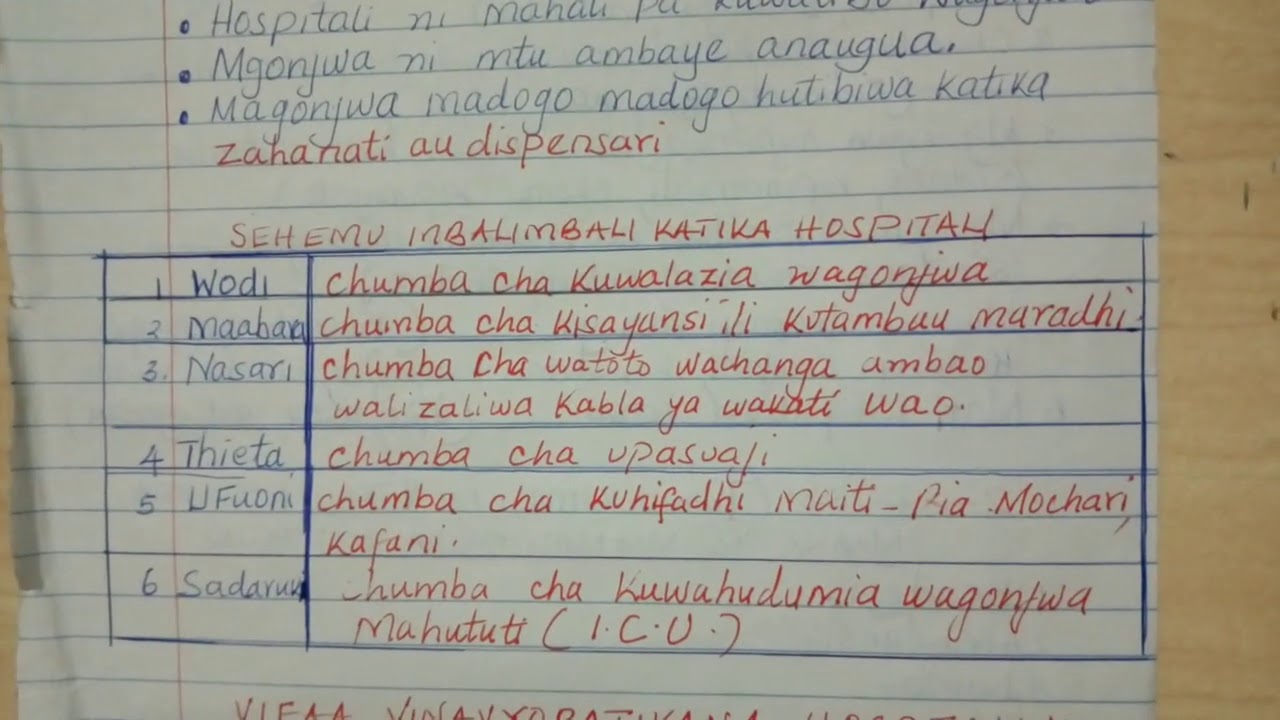 • Hospitali ni mahali pa
• Mgonjwa ni mtu ambaye anaugua.
• Magonjwa madogo madogo hutibiwa katika
zahanati au dispensari
SEHEMU MBALIMBALI KATIKA HOSPITALI
1 Wodi chumba cha Kuwalazia wagonjwa
2 Maabara chumba cha kisayansi ili kutambuu muradhi.
3. Nasari chumba cha watoto wachanga ambao
walizaliwa kabla ya wakati wao.
4 Thieta chumba cha upasuaji
5 Ufuoni chumba cha kuhifadhi maiti - Pia Mochari,
Kafani.
6 Sadaruki chumba cha kuwahudumia wagonjwa
Mahututi (I.C.U.)
VIFAA VINAVYOPATIKANA